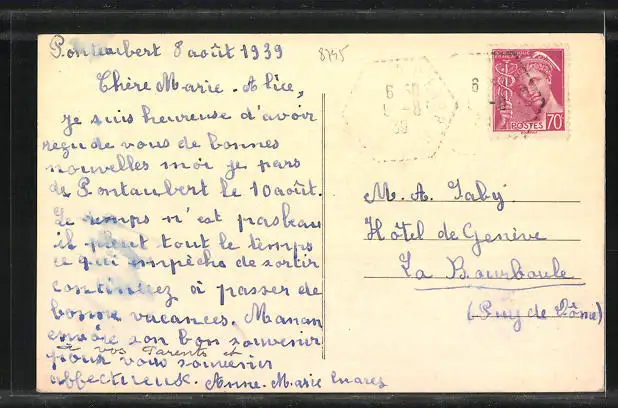 Pontaubert 8 août 1939
8745
Chère Marie-Alice,
je suis heureuse d'avoir
reçu de vous de bonnes
nouvelles moi je pars
de Pontaubert le 10 août.
Le temps n'est pas beau
il pleut tout le temps
ce qui empèche de sortir
continuez à passer de
bonne vacances. Maman
envoie son bon souvenir
à vos Parents et
pour vous souvenir
affectueux. Anne-Marie
POSTES 70c
6
M. A. Jaby
Hôtel de Genève
La Bourboule
(Puy de Dôme)